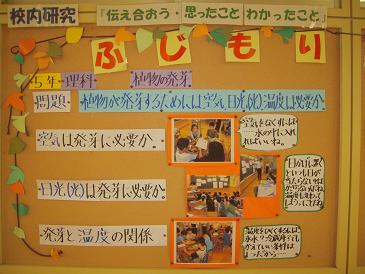 校内研究
「伝え合おう 思ったこと わかったこと」
ふじもり
5年 理科 植物の発芽
問題 植物が発芽するためには空気,日光(光)温度は必要か。
空気は発芽に必要か。
空気をなくすには
水の中に入
ればいいね。
日光(光)は発芽に必要か。
発芽と温度の関係